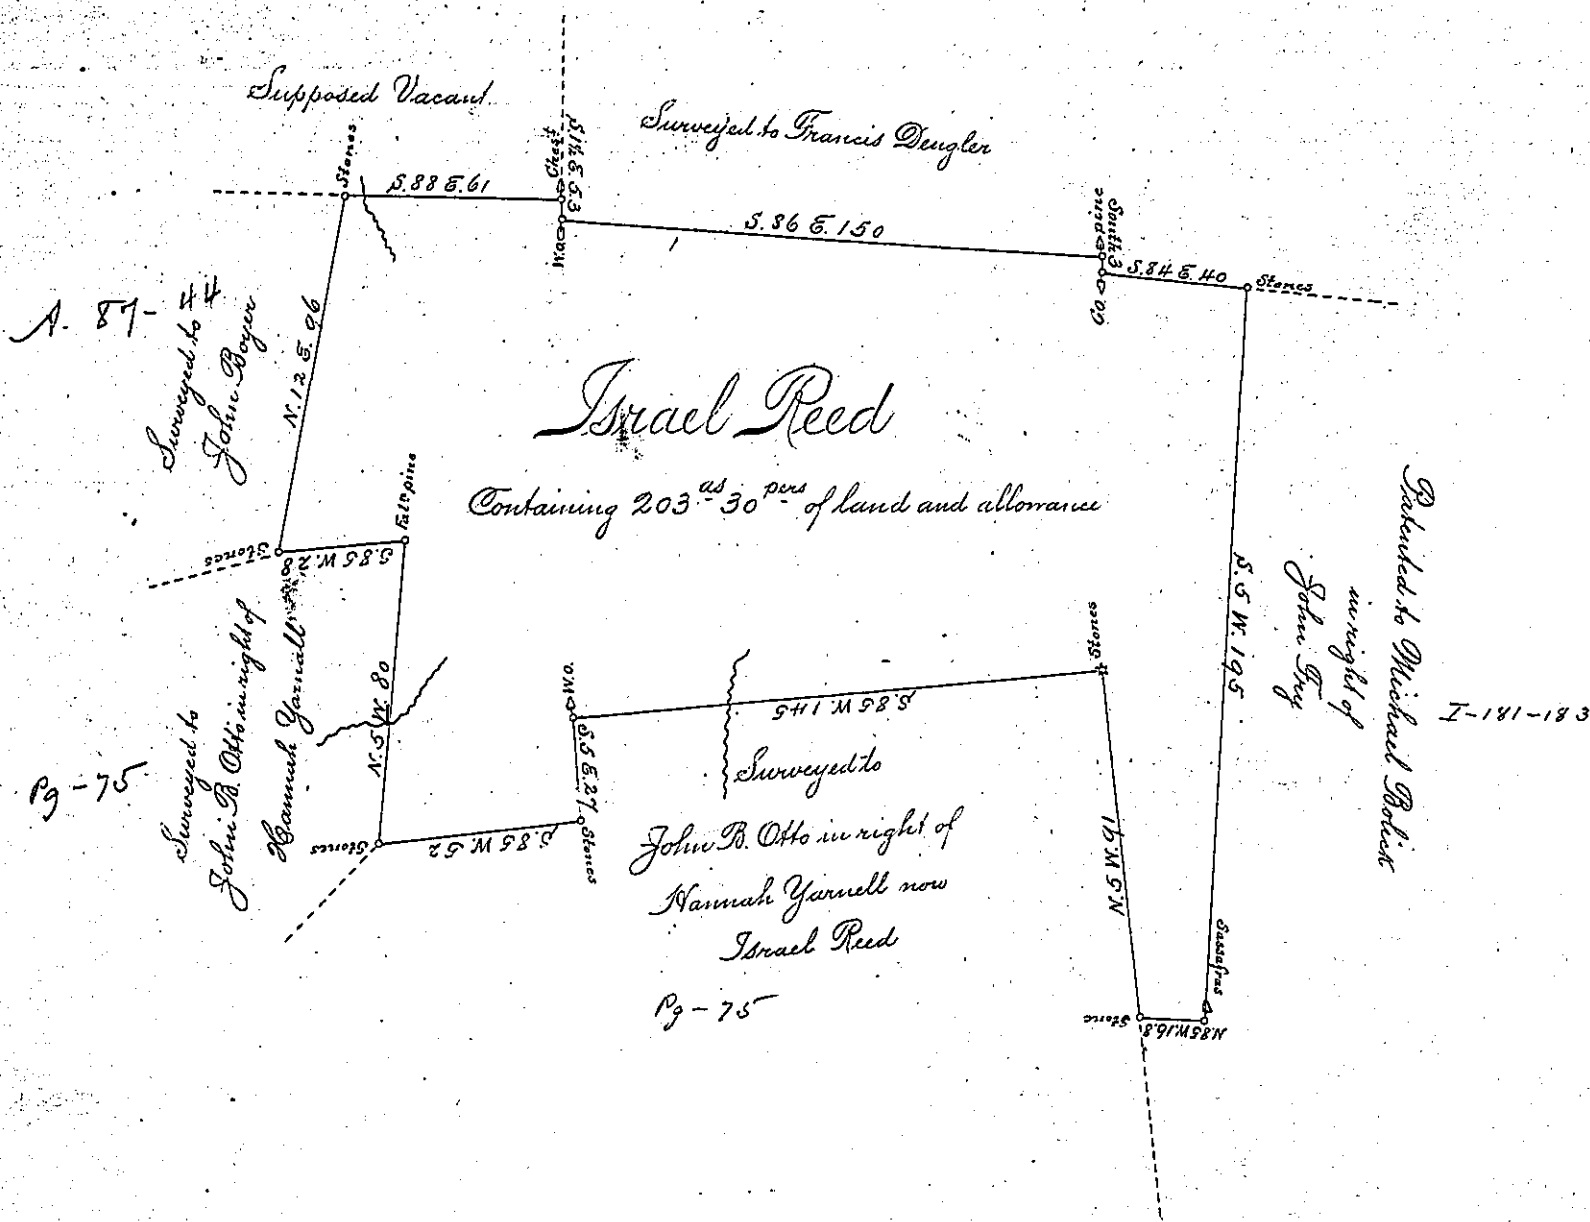 Supposed Vacant.
Surveyed to Francis Dengler
Stones
S. 88 E. 61
Chest
S. 1/4 E. 5.3
W.o.
S. 86 E. 150
pine
South 3
C.o.
S. 84 E. 40
Stones
A. 87-44
Surveyed to
John Boyer
N. 12 E. 96
Israel Reed
Containing 203 as 30 pers of land and allowance
Stones
S. 85 W. 28
Fal. pine
N. 5 W. 80
Surveyed to
John B. Otto in right of
Hannah Yarnall
Pg-75
Stones
S. 85 W. 52
Stones
S. 5 E. 27
W.o.
S. 85 W. 145
Stones
N. 5 W. 91
Surveyed to
John B. Otto in right of
Hannah Yarnell now
Israel Reed
Pg-75
Stone
N. 85 W. 16.8
Sassafras
S. 5 W. 195
Patented to Michael Bolick
in right of
John Fry
I-181-183